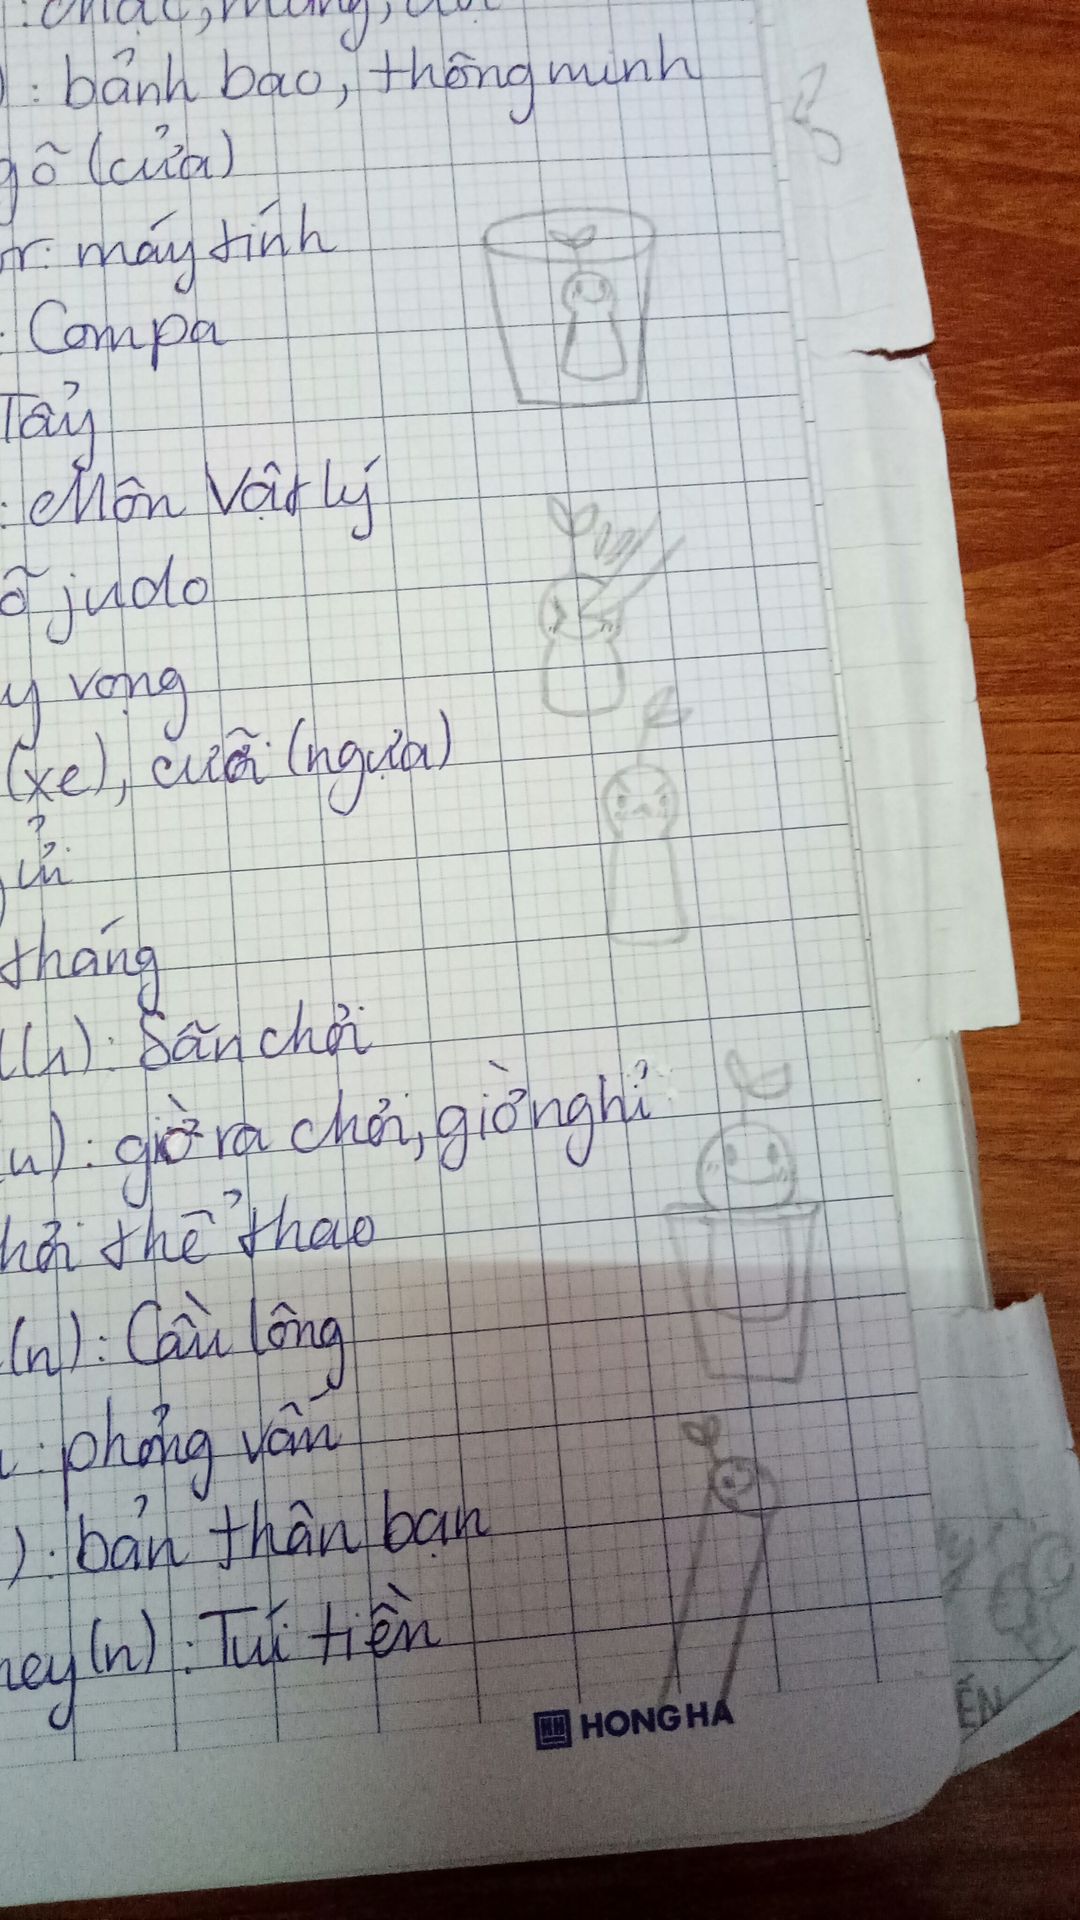 : bảnh bao, thông minh
gõ (cửa)
r: máy tính
: Compa
Tẩy
: Môn Vật lý
õ judo
y vọng
(xe), cưỡi (ngựa)
ủi
tháng
(n): Sân chơi
(n): giờ ra chơi, giờ nghỉ
hơi thể thao
(n): Cầu lông
: phỏng vấn
): bản thân bạn
ney (n): Túi tiền
HONG HA